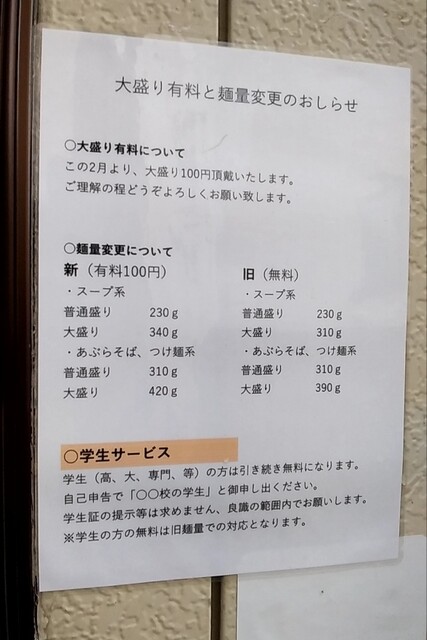 大盛り有料と麺量変更のおしらせ
〇大盛り有料について
この2月より、大盛り100円頂戴いたします。
ご理解の程どうぞよろしくお願い致します。
〇麺量変更について
新（有料100円） 旧（無料）
・スープ系 ・スープ系
普通盛り 230g 普通盛り 230g
大盛り 340g 大盛り 310g
・あぶらそば、つけ麺系 ・あぶらそば、つけ麺系
普通盛り 310g 普通盛り 310g
大盛り 420g 大盛り 390g
〇学生サービス
学生（高、大、専門、等）の方は引き続き無料になります。
自己申告で「〇〇校の学生」と御申し出ください。
学生証の提示等は求めません、良識の範囲内でお願いします。
※学生の方の無料は旧麺量での対応となります。